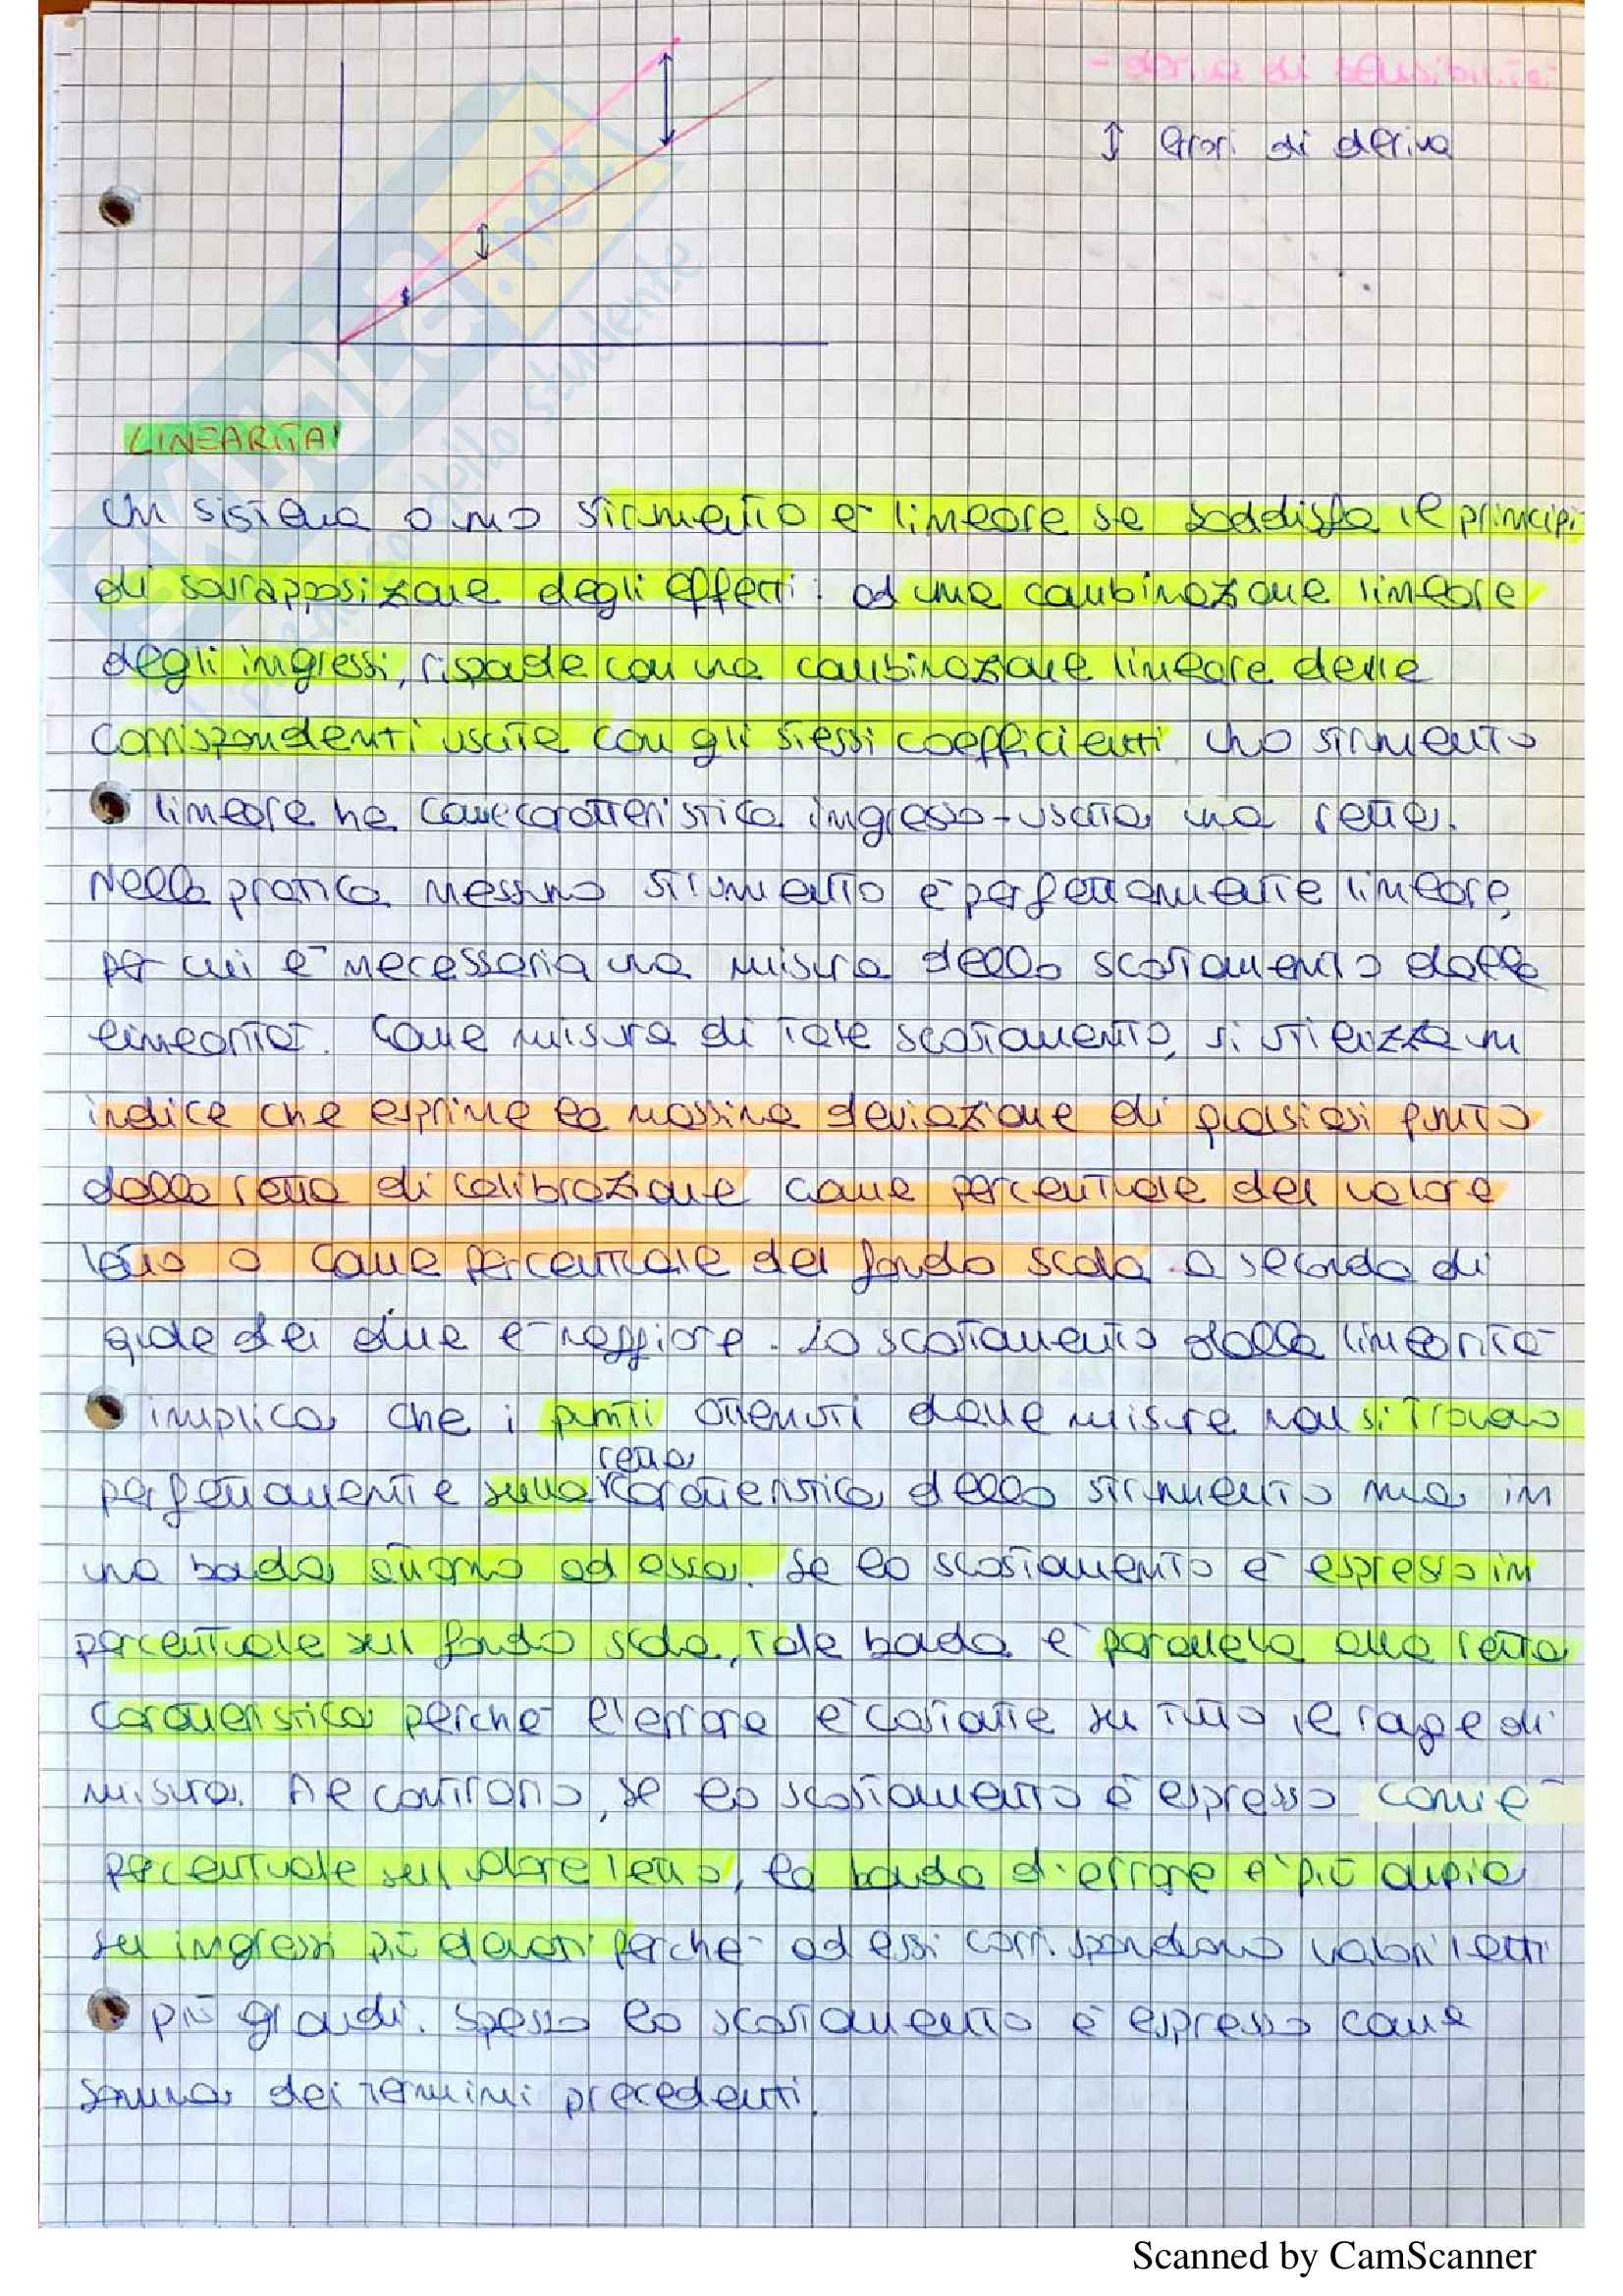 - deriva di sensibilità
↕ errori di deriva
LINEARITA'
Un sistema o uno strumento è lineare se soddisfa il principi
di sovrapposizione degli effetti: ad una combinazione lineare
degli ingressi, risponde con una combinazione lineare delle
corrispondenti uscite con gli stessi coefficienti. Uno strumento
lineare ha come caratteristica ingresso-uscita una retta.
Nella pratica nessuno strumento è perfettamente lineare,
per cui è necessaria una misura dello scostamento dalla
linearità. Come misura di tale scostamento, si utilizza un
indice che esprime la massima deviazione di qualsiasi punto
dalla retta di calibrazione come percentuale del valore
letto o come percentuale del fondo scala a seconda di
quale dei due è maggiore. Lo scostamento dalla linearità
implica che i punti ottenuti dalle misure non si trovano
retta
perfettamente sulla caratteristica dello strumento ma in
una banda attorno ad essa. Se lo scostamento è espresso in
percentuale sul fondo scala, tale banda è parallela alla retta
caratteristica perché l'errore è costante su tutto il range di
misura. Al contrario, se lo scostamento è espresso come
percentuale sul valore letto, la banda d'errore è più ampia
su ingressi più elevati perché ad essi corrispondono valori letti
più grandi. Spesso lo scostamento è espresso come
somma dei termini precedenti.
SKUOLA.net
dello studente
Scanned by CamScanner